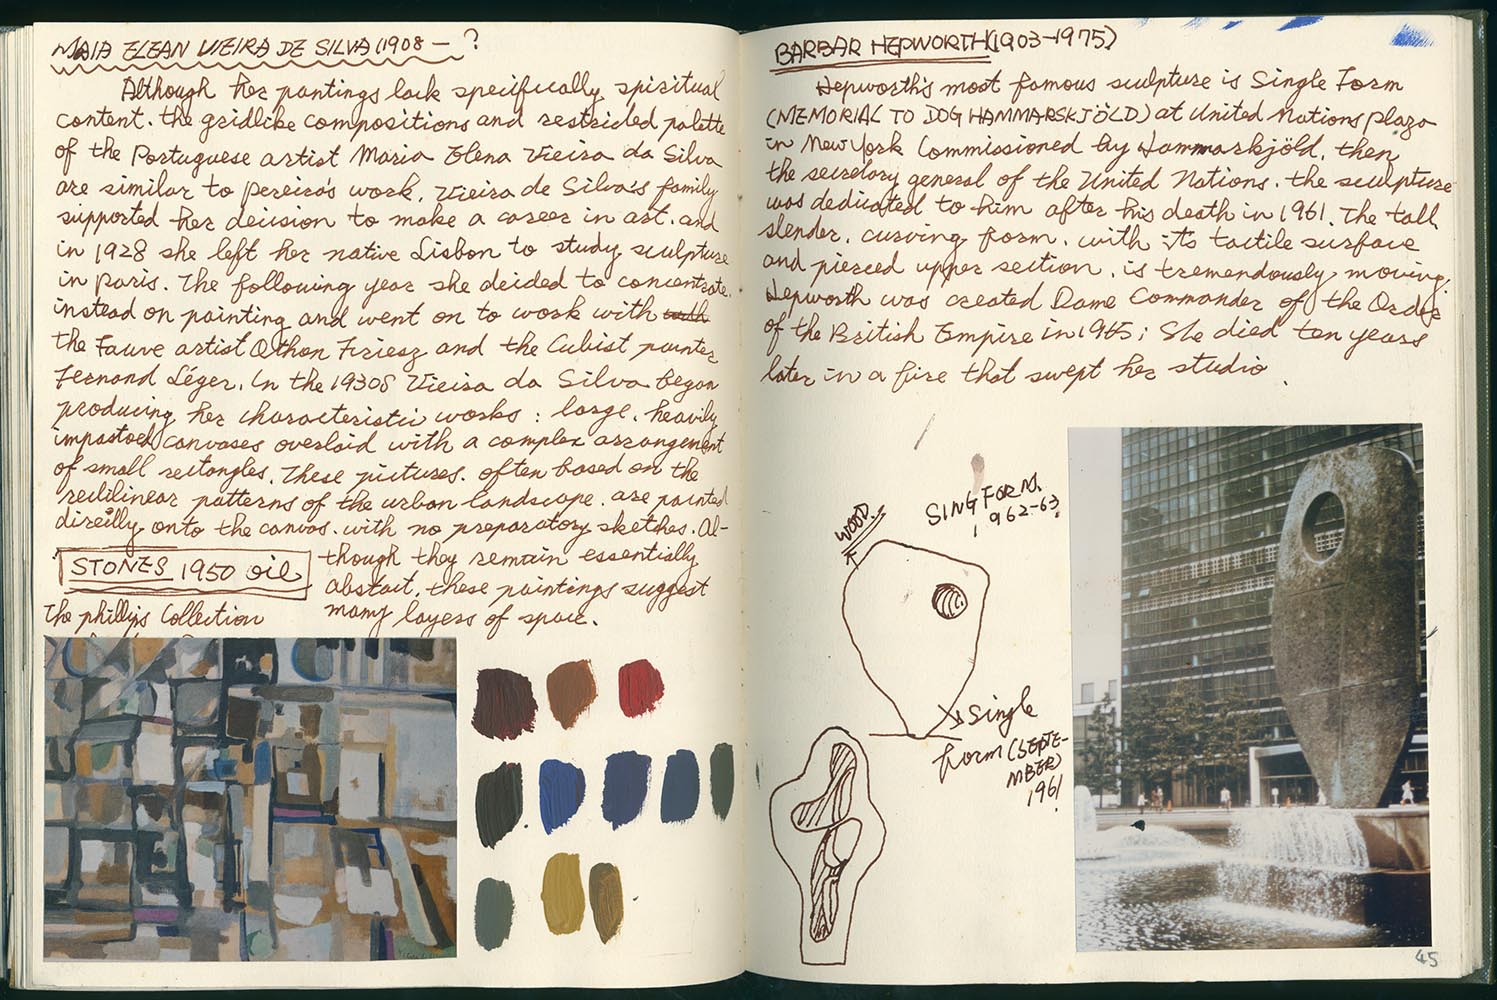 MAIA ELEAN VIEIRA DE SILVA (1908 — ?
Although her pantings lack specifically spiritual
content. the gridlike compositions and restricted palette
of the Portuguese artist Maria Elena Vieira da Silva
are similar to pereira's work. Vieira de Silva's family
supported her decision to make a career in art. and
in 1928 she left her native Lisbon to study sculpture
in paris. The following year she decided to concentrate.
instead on painting and went on to work with
the Fauve artist Othon Friesz and the Cubist painter
Fernand Léger. In the 1930s Vieira da Silva began
producing her characteristic works : large. heavily
impastoed canvases overlaid with a complex arrangement
of small rectangles. These pictures. often based on the
rectilinear patterns of the urban landscape. are painted
directly onto the canvas. with no preparatory sketches. Al-
though they remain essentially
abstract. these paintings suggest
many layers of space.
STONES 1950 oil
The phillips Collection
BARBAR HEPWORTH (1903-1975)
Hepworth's most famous sculpture is Single Form
(MEMORIAL TO DOG HAMMARSKJÖLD) at United Nations plaza
in New York Commissioned by Hammarskjöld. then
the secretary general of the United Nations. the sculpture
was dedicated to him after his death in 1961. The tall
slender. curving form. with its tactile surface
and pierced upper section. is tremendously moving.
Hepworth was created Dame Commander of the Order
of the British Empire in 1965; She died ten years
later in a fire that swept her studio.
WOOD
SING FORM.
1962-63
Single
form (SEPTE-
MBER)
1961
45